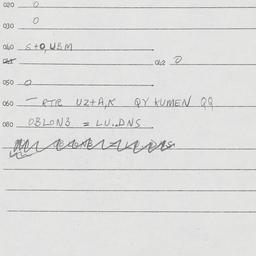 020 0
030 0
040 S+O,WBM
062 0
050 0
060 — RTR UZ+A,K QY KUMEN QQ
080 OBLON3 = LU..DNS